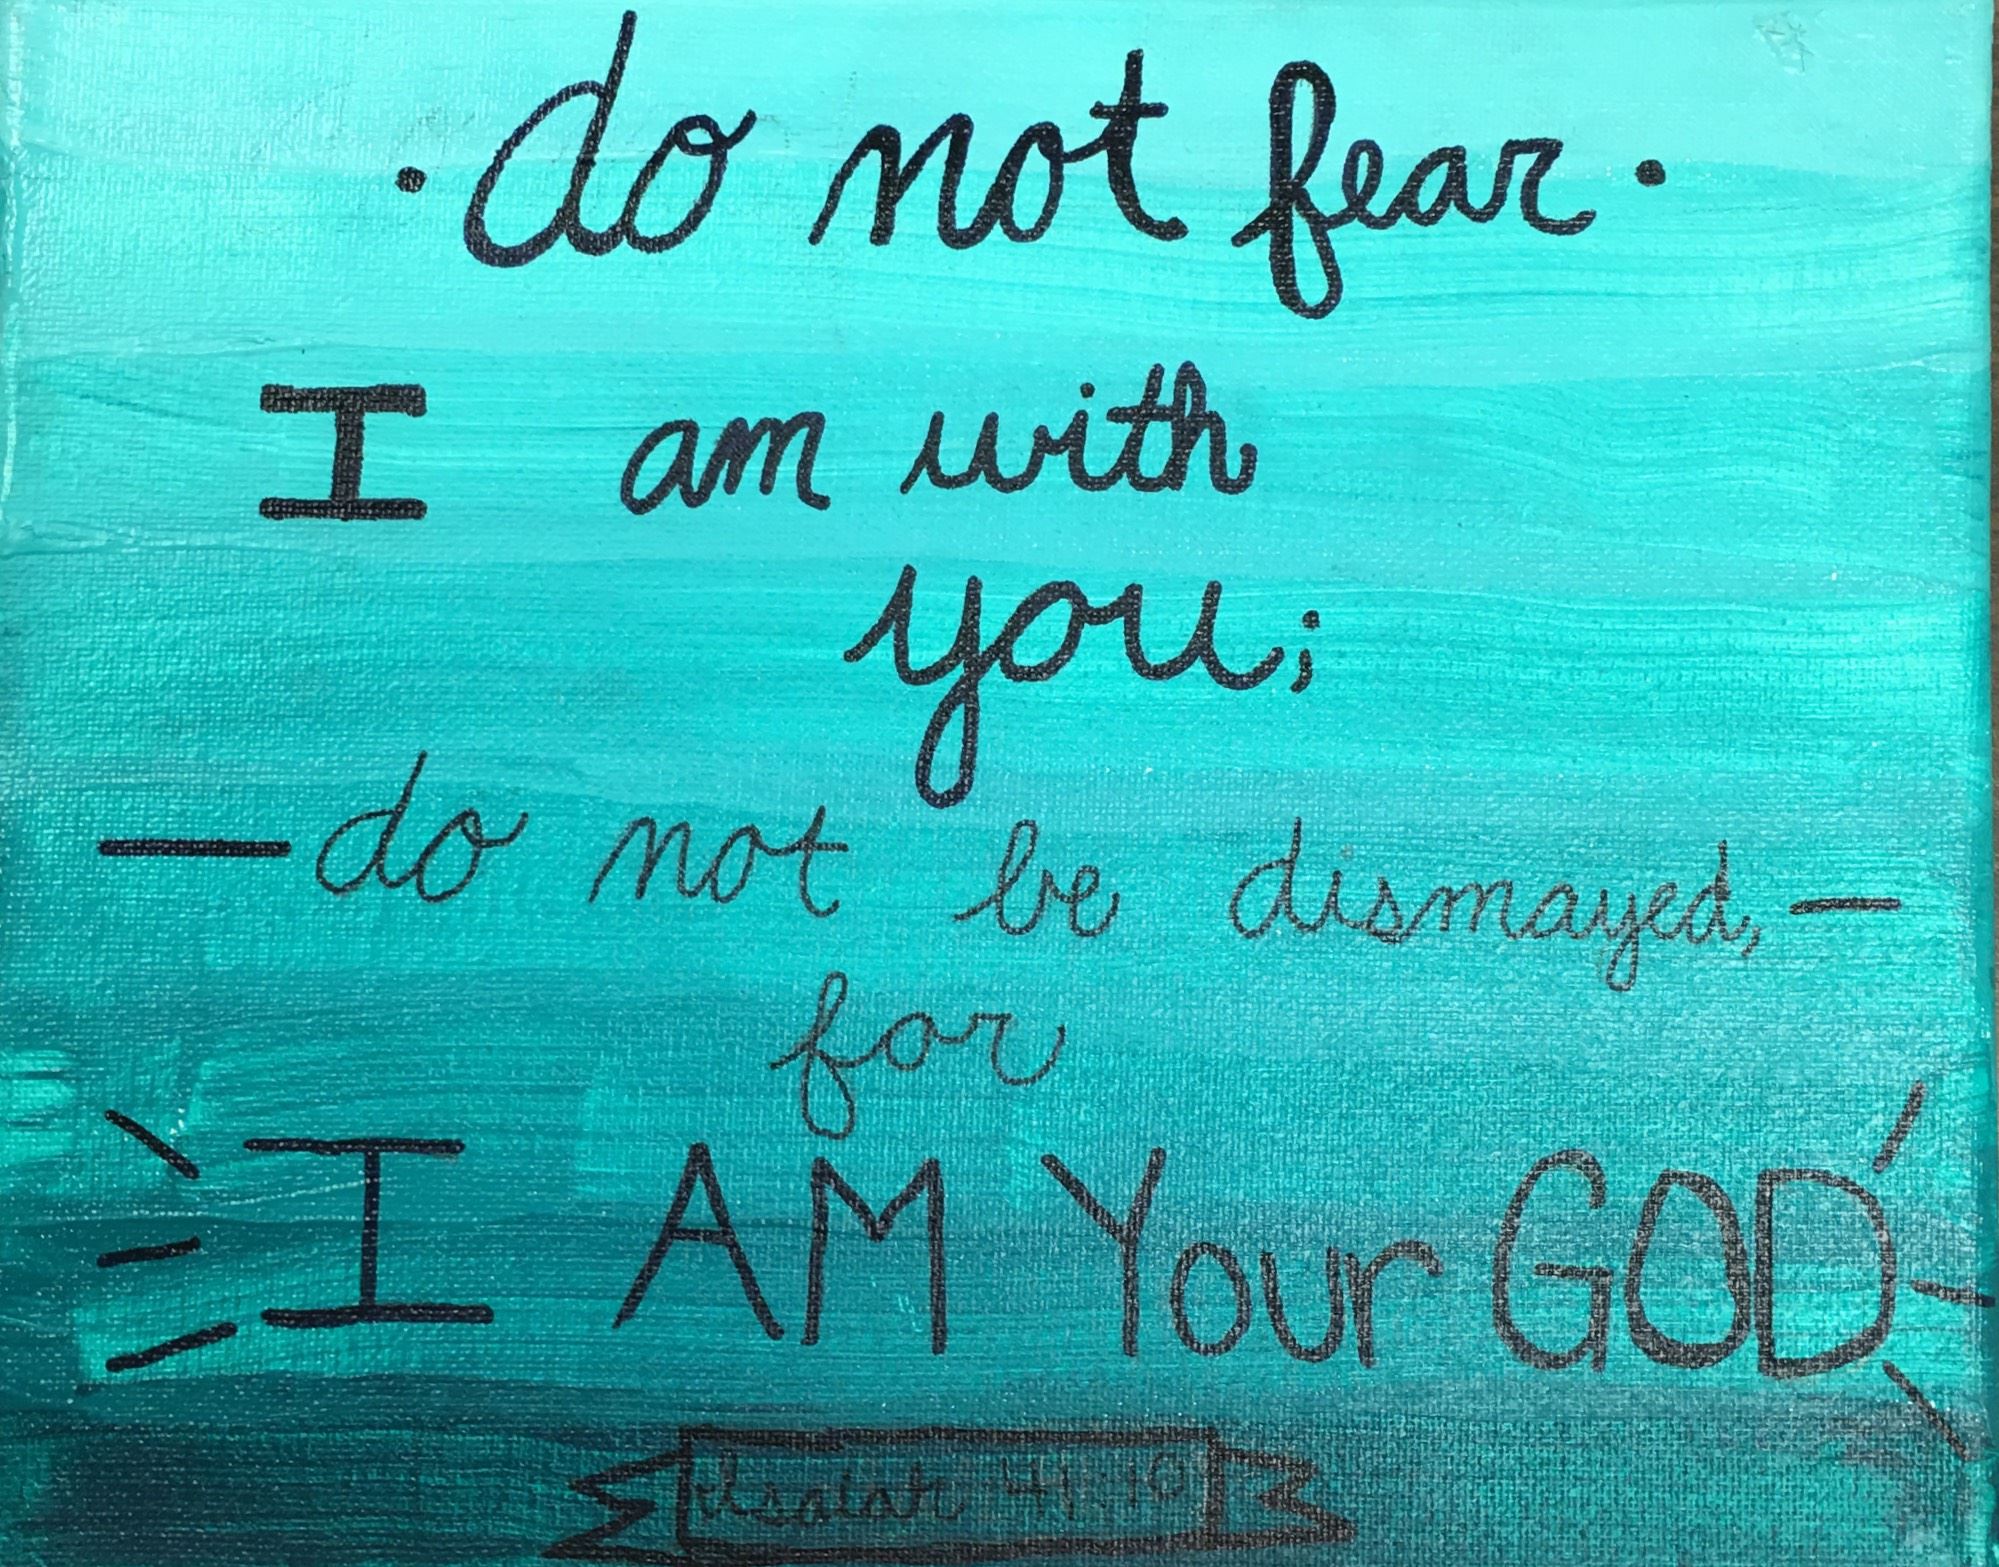 · do not fear ·
I am with
you;
— do not be dismayed, —
for
I AM Your GOD
Isaiah 41:10